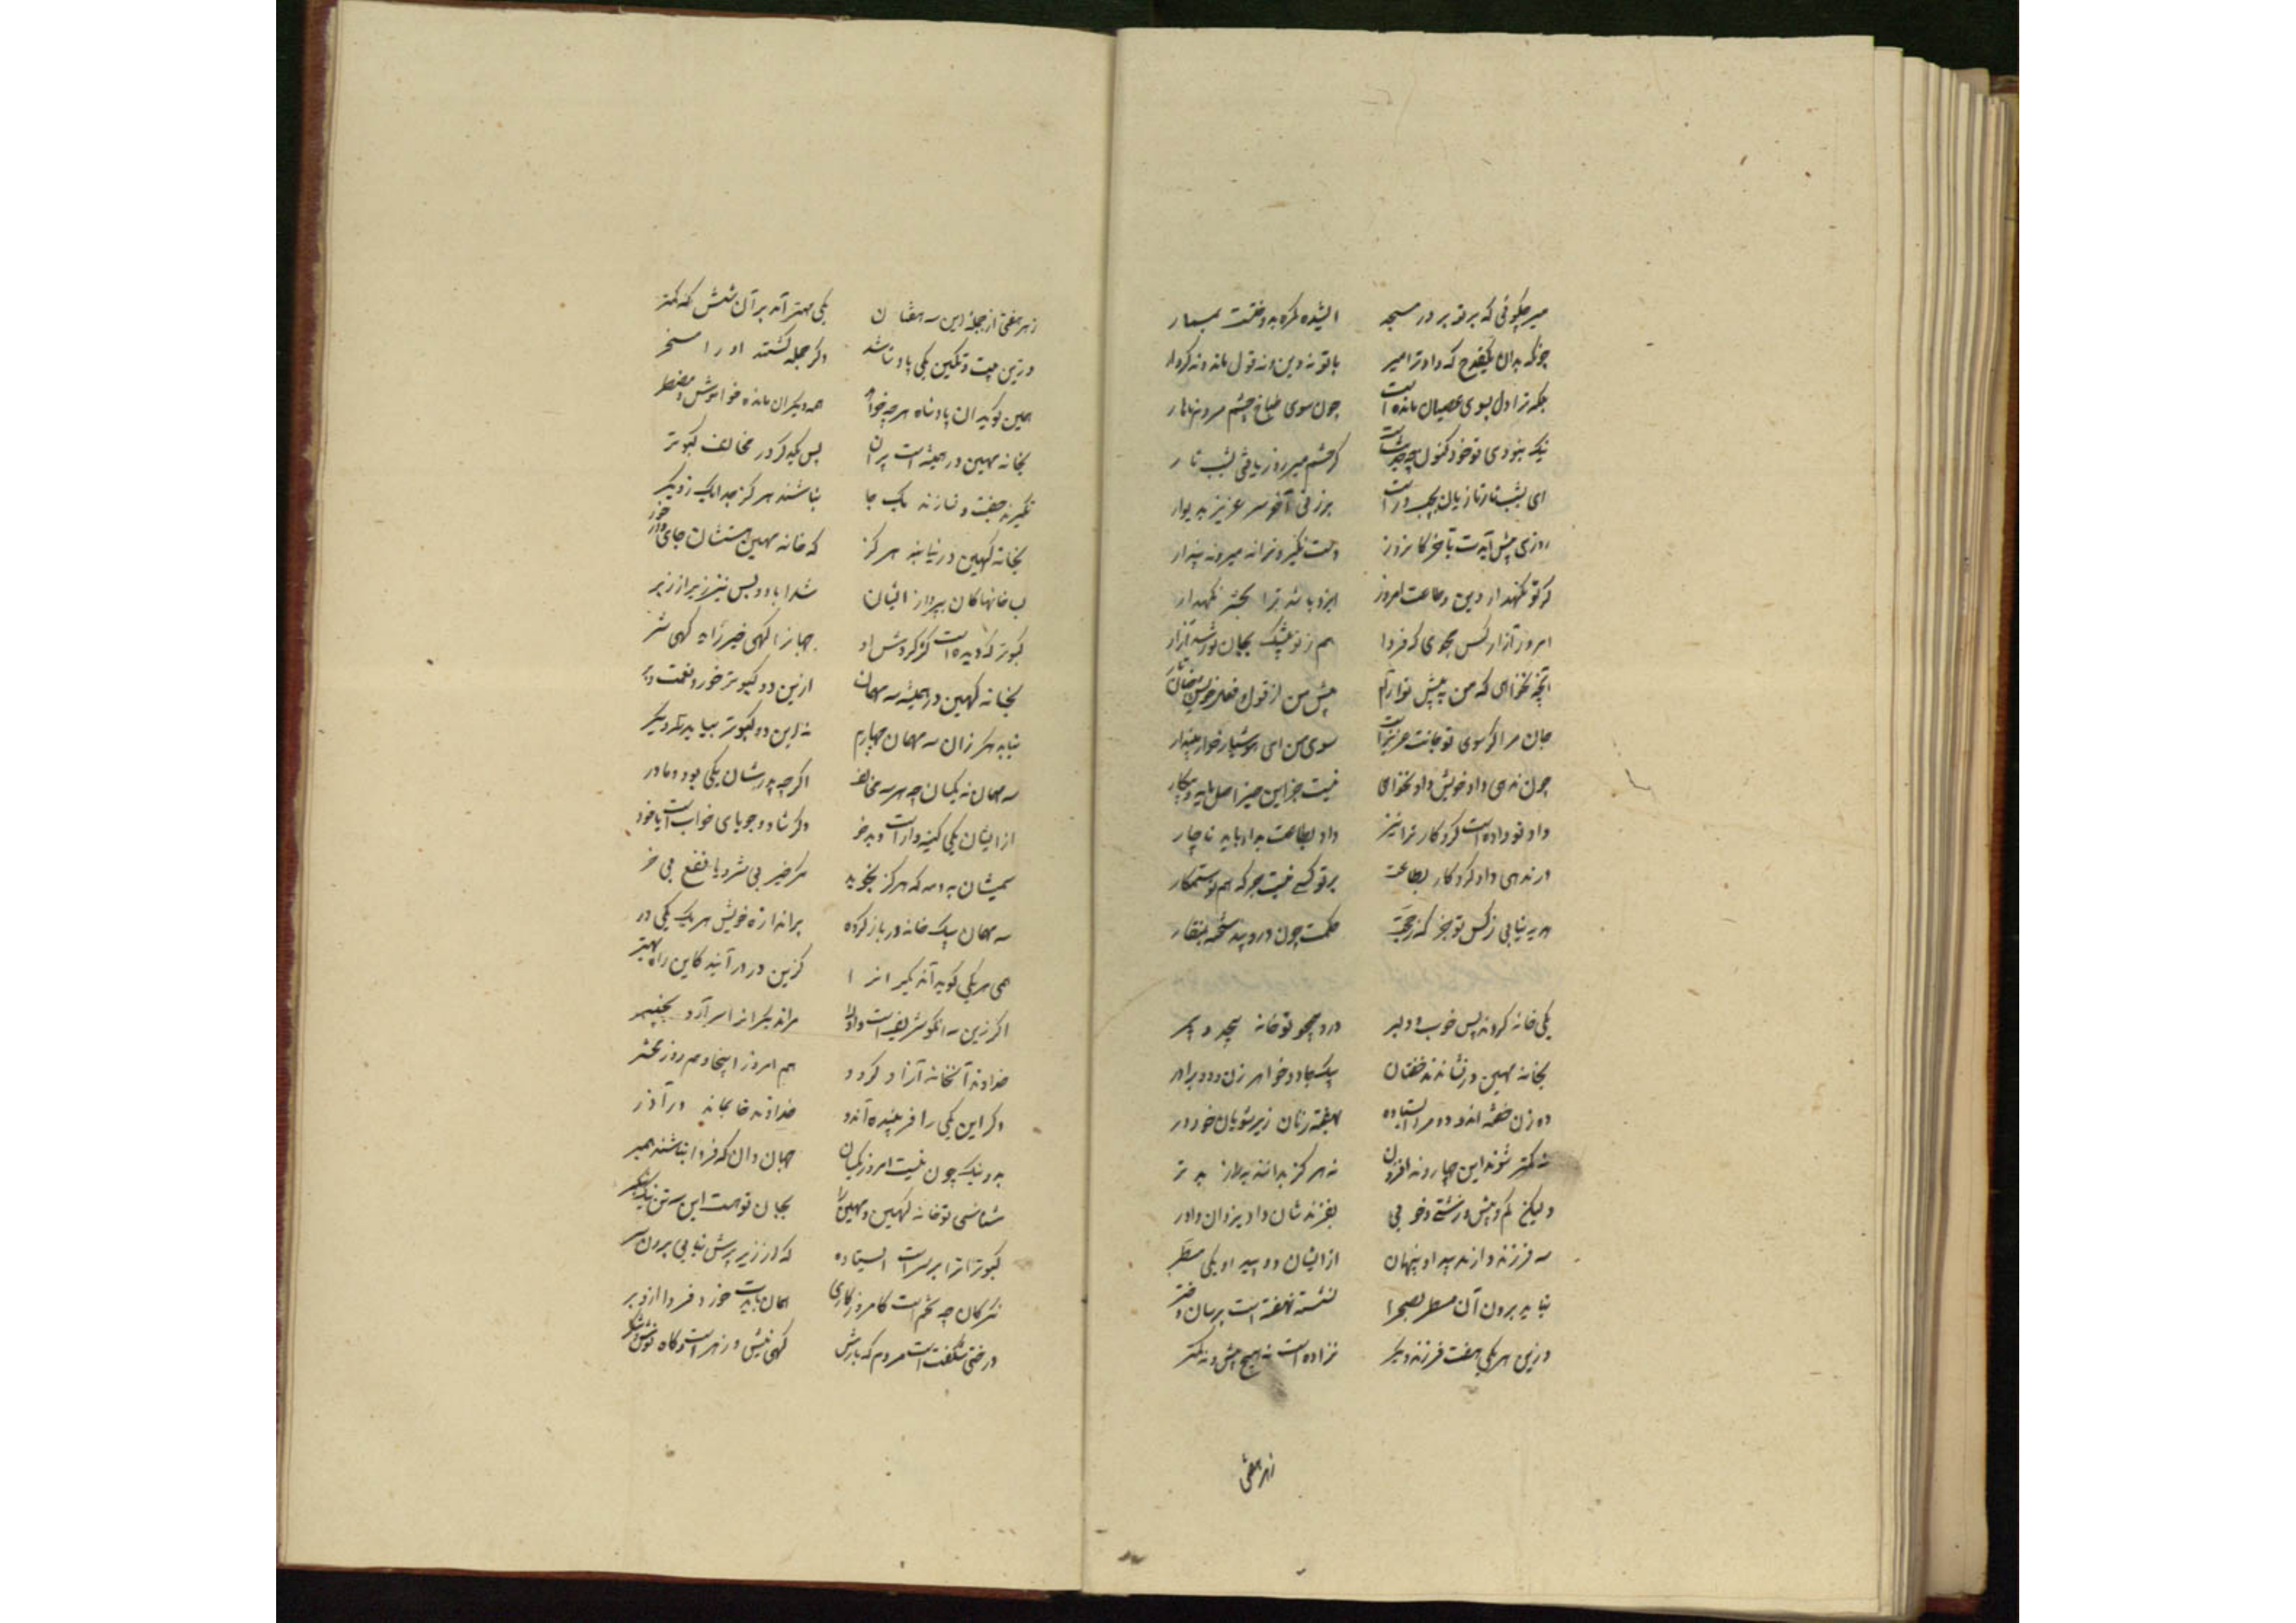 میر چکوئی که برتو بر در مسجد ایشده کرده به وختت بسیار
چونکه بدان یکقدح که داد ترا میر با تو نه دین و نه قول ماند و نه کردار
بلکه ترا دل بسوی عصیان مانده است چون سوی طباخ چشم مردم ناهار
نیک بنودی تو خود کنون چه حدیثست گر حشم میر روز یافتی شب تار
ای بشب تار تازیان بچپ و راست برزنی آخر سر عزیز بدیوار
روزی پیش آیدت بآخر کان روز دست نگیرد ترا نه میر و نه پندار
گر تو نگهدار دین و طاعت امروز ایزد باشد ترا بحشر نگهدار
امروز آزار کس مجوی که فردا هم ز تو بیشک بجان تو رسد آزار
آنچه نخواهی که من بپیش تو آرم پیش من از قول و فعل خویش چنان مار
جان مرا گر سوی تو جانت عزیز است سوی من ای هوشیار خوار مپندار
چون ندهی داد خویش داد نخواهی نیست جز این خیر اصل مایه و پیکار
داد تو داده است کردگار ترا نیز داد بطاعت بداد باید ناچار
ور ندهی داد کردگار بطاعت بر تو کسی نیست جز که هم تو ستمکار
هدیه نیابی ز کس تو جز که ز حجت حکمت چون در و پند سخته بمنقار
یکی خانه کردند بس خوب و دلبر درو همچو تو خانه بیحد و بیمر
بخانه مهین در نشاندند خفتان بیکجا دو خواهر زن و دو برادر
دو زن خفته اند و دو مرد ایستاده نهفته زنان زیر شویان خود در
نه کمتر شوند این چهار و نه افزون نه هرگز بدانند به را ز بدتر
ولیکن کم و بیش و زشتی و خوبی بفرزندشان داد یزدان داور
سه فرزند دارند پیدا و پنهان از ایشان دو پیدا و یکی مستر
نیاید برون آن مستر بصحرا نشسته نهفته است برسان دختر
وزین هر یکی هفت فرزند دیگر نزاده است نه هیچ بیش و نه کمتر
زهر هفتی
زهر هفتی از جمله این سه هفتان یکی مهتر آمد بر آن شش که کمتر
وزین بیست و یک تن یکی پادشا شد دگر جمله گشتند او را مسخر
همین گوید آن پادشاه هر چه خواهد همه دیگران مانده خاموش و مضطر
بخانه مهین در همیشه است پران پس یکدگر در مخالف کبوتر
نگیرند جفت و نسازند یک جا نباشند هرگز جدا یک ز دیگر
بخانه کهین در نیایند هرگز که خانه مهینستشان جای در خور
کبوتر که دیده است کز گردش او جهانرا گهی خیر زاید گهی شر
بخانه کهین در همیشه سه مهمان از این دو کبوتر خورد نعمت و بر
نیاید هرگز زان سه مهمان چهارم نه این دو کبوتر بیابد پر دیگر
سه مهمان نه یکسان و هر سه مخالف اگرچه پدرشان یکی بود و مادر
از ایشان یکی کینه دار است و بدخو دگر شاد و جویای خواب است یا خور
سیمشان به و مه که هرگز نجوید مگر خیر بی شر و یا نفع بی ضر
سه مهمان بیک خانه در باز کرده بر اندازه خویش هر یک یکی در
همی هر یکی گوید آن دیگرانرا کزین در درآئید کاین راه بهتر
اگر زین سه آنکو شریف است او را مر آن دیگرانرا سر آرد بچنبر
خداوند آنخانه آزاد گردد هم امروز اینجا و هم روز محشر
وگر این یکی را فریبنده آندو خداوند خانماند در آذر
بد و نیک چون نیست امروز یکسان چنان دان که فردا نباشند همبر
شناسی تو خانه کهین و مهین را بجان تو است این سه تن نیک بنگر
کبوتر ترا بر سر است ایستاده که از زیر پرش نیابی برون سر
نگر کان چه تخم است کامروز کاری همان بایدت خورد فردا ازو بر
درختی شگفت است مردم که بارش گهی نیش و زهر است و گاه نوش و شکر